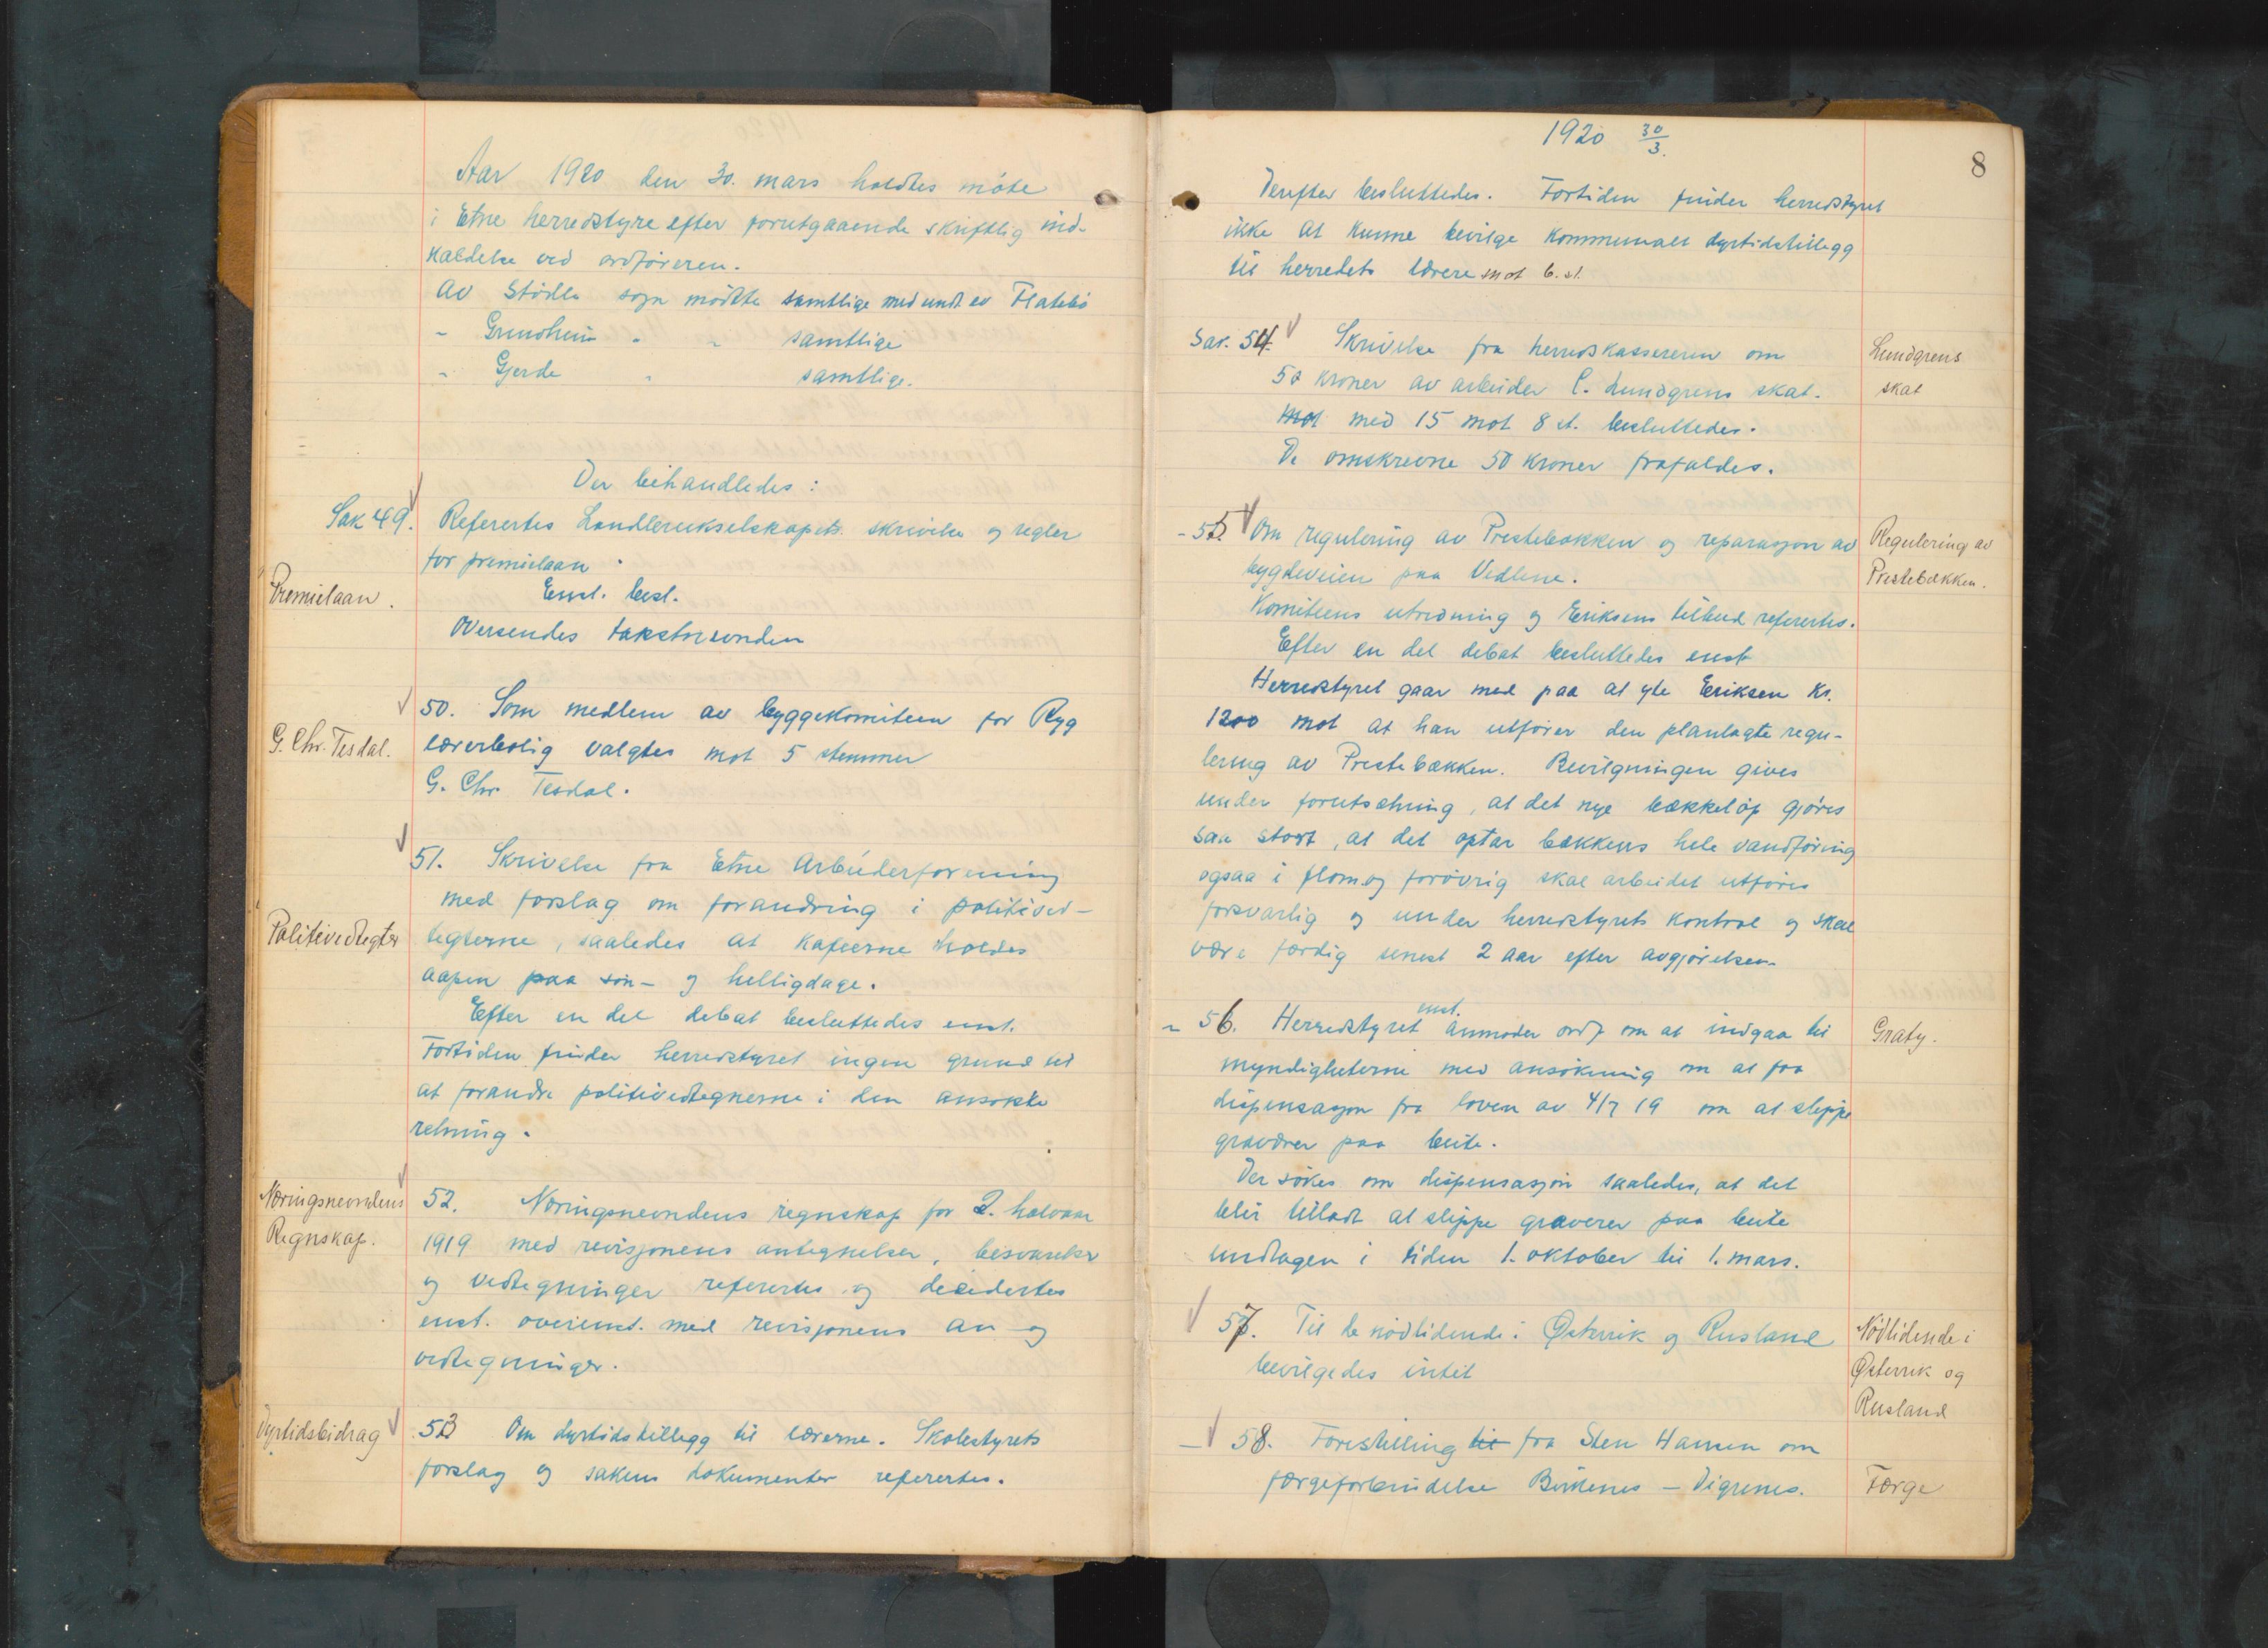 Aar 1920 den 30. mars holdtes møte
i Etne herredstyre efter forutgaaende skriftlig ind-
kaldelse ved ordføreren.
Av Stødle sogn møtte samtlige med undt. av Flatebø
" Grindheim " " samtlige
" Gjerde " samtlige.
Der behandledes:
Sak 49. Referertes Landbruksselskapets skrivelse og regler
for premielaan.
Premielaan.
Enst. besl.
Oversendes takstnevnden
50. Som medlem av byggekomiteen for Ryg
G. Chr. Tesdal.
lærerbolig valgtes mot 5 stemmer
G. Chr. Tesdal.
51. Skrivelse fra Etne Arbeiderforening
med forslag om forandring i politived-
Politivedtegter
tegterne, saaledes at kafeerne holdes
aapen paa søn- og helligdage.
Efter en del debat besluttedes enst.
Fortiden finder herredstyret ingen grund til
at forandre politivedtegterne i den ansøkte
retning.
Næringsnevndens
Regnskap.
52. Næringsnevndens regnskap for 2. halvaar
1919 med revisjonens antegnelser, besvarelser
og vedtegninger refererets og decidertes
enst. overenst. med revisjonens an- og
vedtegninger.
Dyrtidsbidrag
53 Om dyrtidstillegg til lærerne. Skolestyrets
forslag og sakens dokumenter referertes.
1920 30/3.
8
Derefter besluttedes. Fortiden finder herredstyret
ikke at kunne bevilge kommunalt dyrtidstillegg
til herredets lærere mot 6. st.
Sak. 54. Skrivelse fra herredskassereren om
50 kroner av arbeider C. Lundgrens skat.
Lundgrens
skat
mot med 15 mot 8 st. besluttedes.
De omskrevne 50 kroner frafaldes.
- 55 Om regulering av Prestebækken og reparasjon av
bygdeveien paa Vedlene.
Regulering av
Prestebækken.
Komiteens utredning og Eriksens tilbud referertes.
Efter en del debat besluttedes enst
Herredstyret gaar med paa at yte Eriksen Kr.
1200 mot at han utfører den planlagte regu-
lering av Prestebækken. Bevilgningen gives
under forutsætning, at det nye bækkeløp gjøres
saa stort, at det optar bækkens hele vandføring
ogsaa i flom og forøvrig skal arbeidet utføres
forsvarlig og under herredstyrets kontrol og skal
være færdig senest 2 aar efter avgjørelsen.
- 56. Herredstyret enst. anmoder ordf om at indgaa til
Graty.
myndigheterne med ansøkning om at faa
dispensasjon fra loven av 4/7 19 om at slippe
graværer paa beite.
Der søkes om dispensasjon saaledes, at det
blir tilladt at slippe graverer paa beite
undtagen i tiden 1. oktober til 1. mars.
57. Til de nødlidende i Østerrik og Rusland
bevilgedes intet
Nødlidende i
Østerrik og
Rusland
- 58. Forestilling til fra Sten Hansen om
færgeforbindelse Birkenes - Vigrenes.
Færge